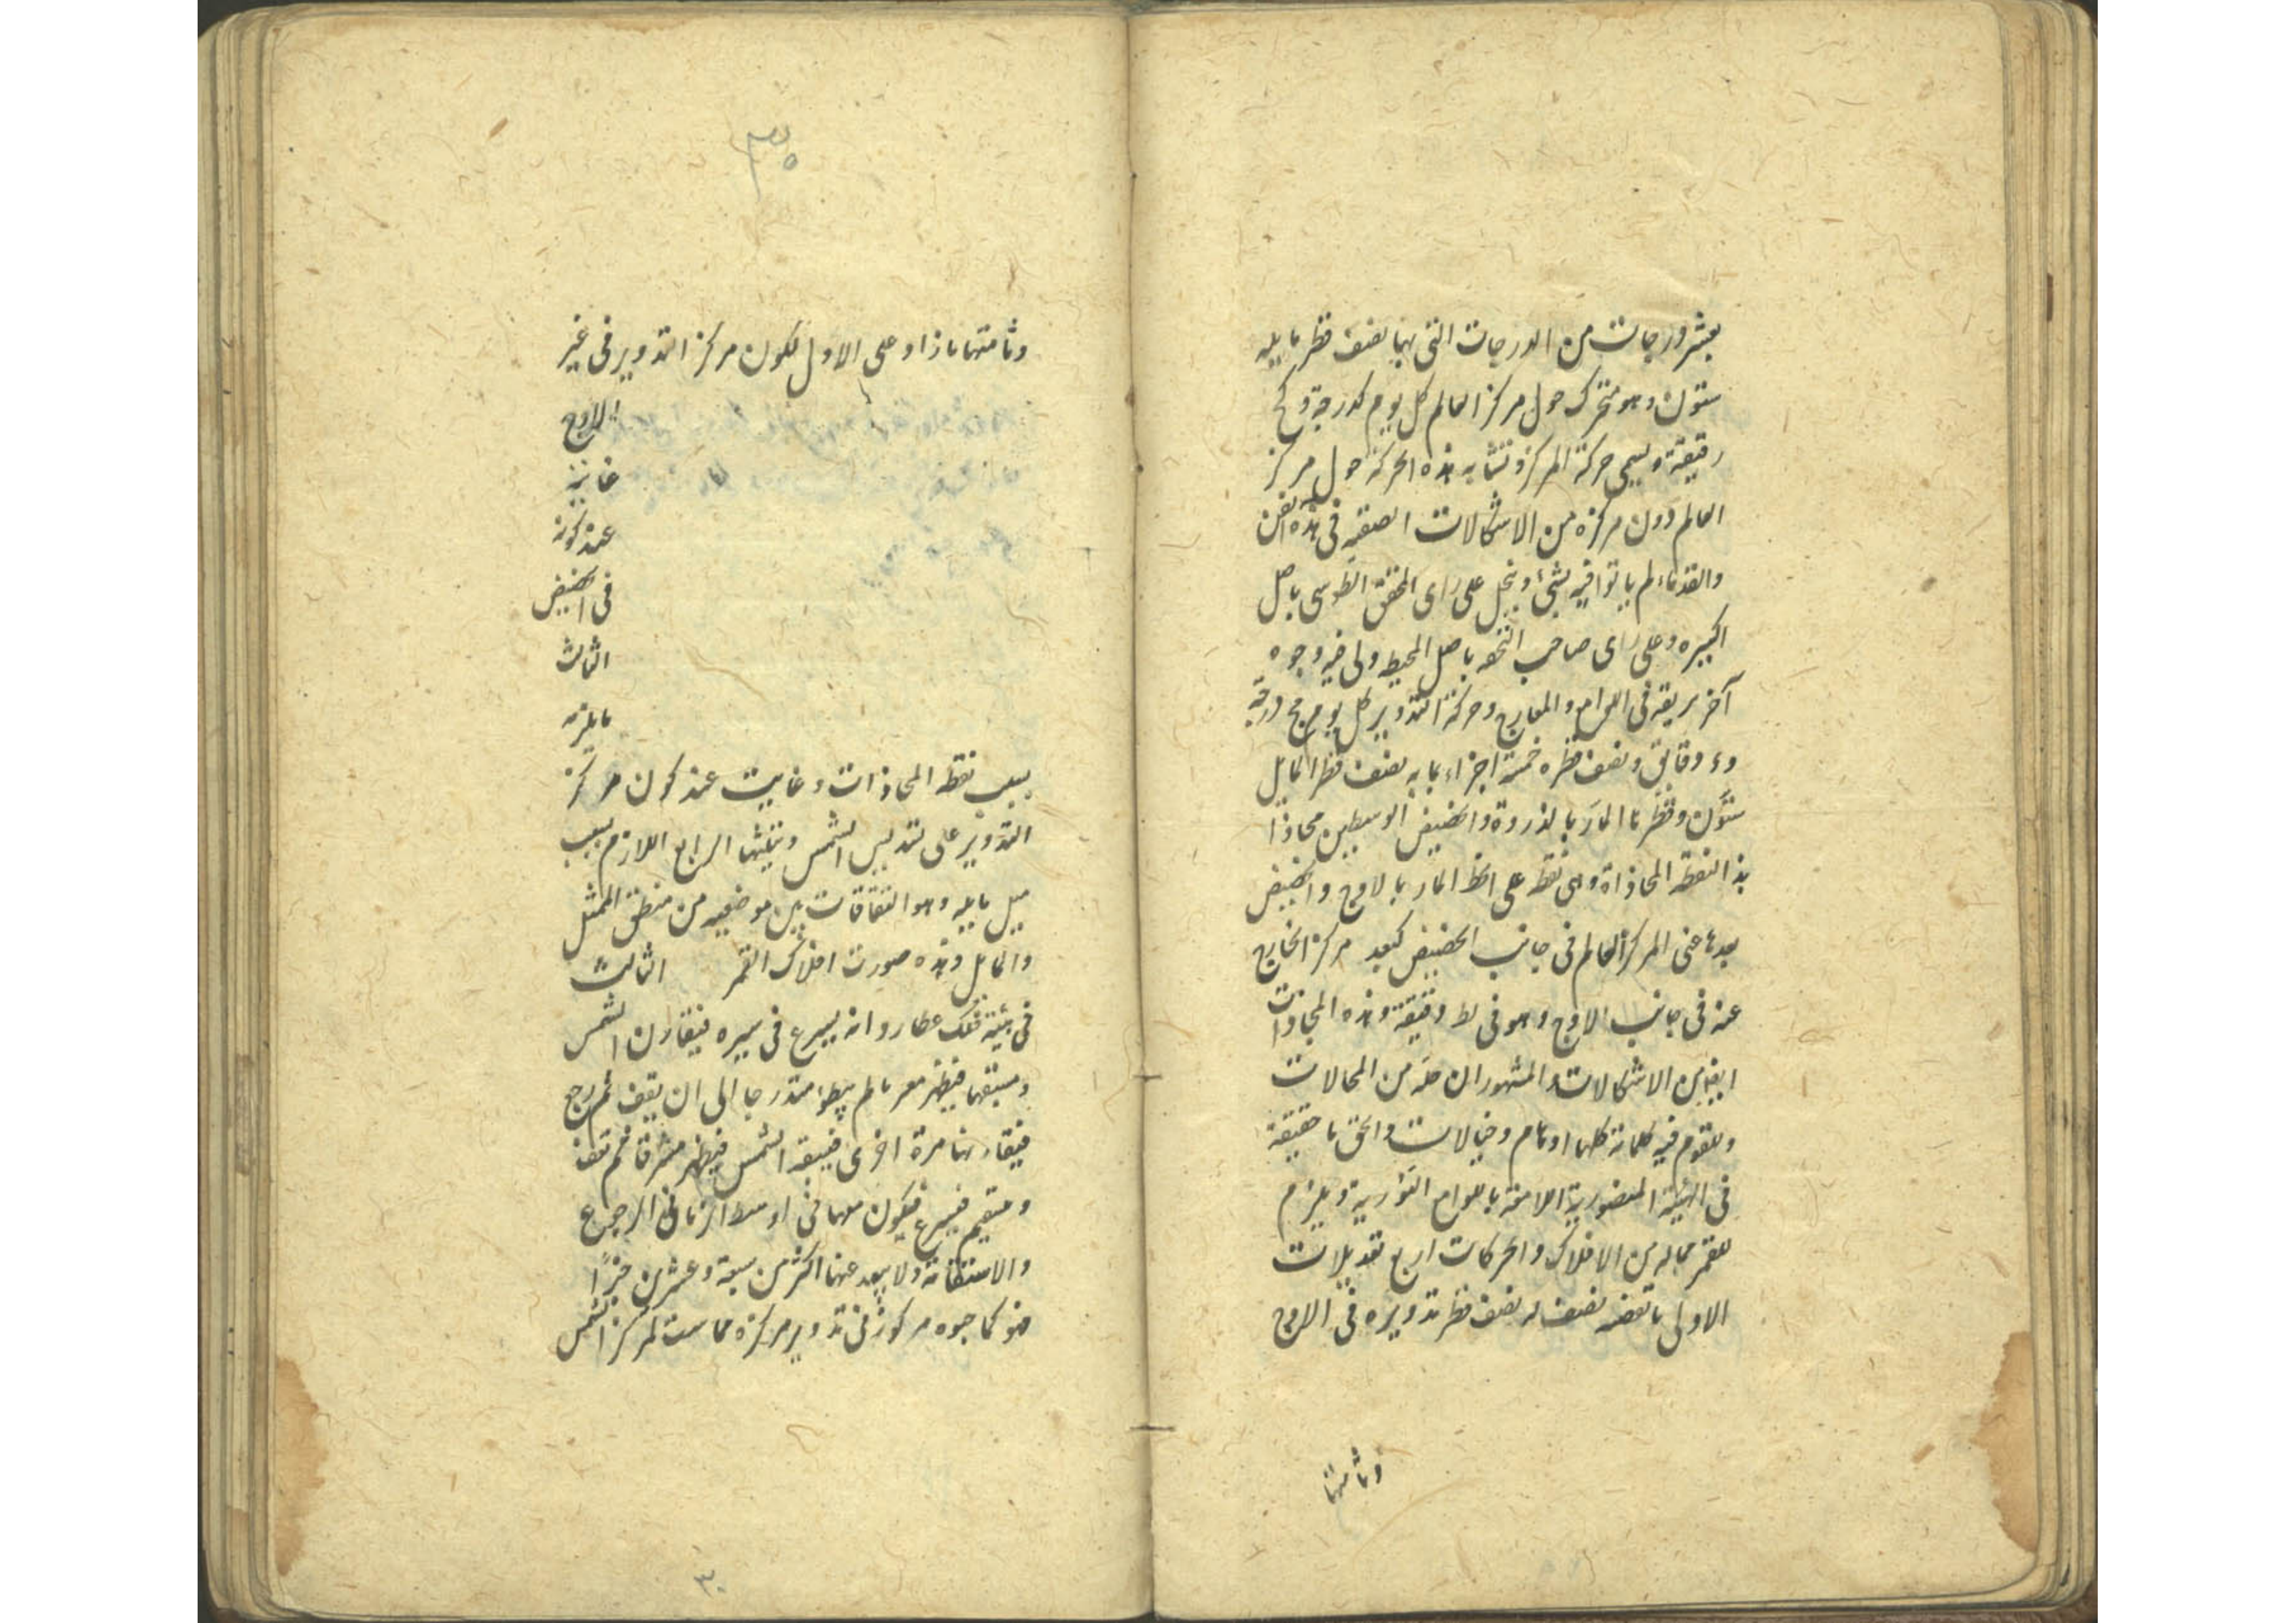 بعشر درجات من الدرجات التى بها نصف قطر مايله
ستون وهو متحرك حول مركز العالم كل يوم كدرجة و كح
دقيقة ويسمى حركة المركز وتشابه هذه الحركة حول مركز
العالم دون مركزه من الاشكالات الصعبة فى هذه الفن
والقدماء لم ياتوا فيه بشئ وينحل على راى المحقق الطوسى باصل
الكبيره وعلى راى صاحب التحفه باصل المحيط ولى فيه وجوه
آخر بريقه فى اللوامع والمعارج وحركة التدوير كل يوم يج درجة
و ء دقايق ونصف قطره خمسة اجزاء بما به نصف قطر المايل
ستون وقطرها المار بالذروة والحضيض الوسطين محاذا
بذا النقطه المحاذاة وهى نقطه على الخط المار بالاوج والحضيض
بعدها عنى المركز العالم فى جانب الحضيض كبعد مركز الخارج
عنه فى جانب الاوج وهو فى لط دقيقة وهذه المحاذات
ايضا من الاشكالات والمشهور ان حله من المحالات
وللقوم فيه كلمات كلها اوهام وخيالات والحق ما حقيقة
فى الهيئة المنصورية اللامعة باللوامع النورية ويلزم
للقمر مماله من الافلاك والحركات اربع تعديلات
الاولى ما تقضه نصف له نصف قطر تدويره فى الاوج
وثامنها
٣٥
وثامنتها ما زاد على الاول لكون مركز التدوير فى غير
الاوج
غايته
عند كونه
فى الحضيض
الثالث
ما يلزمه
بسبب نقطه المحاذات وغايت عند كون مركز
التدوير على تسديس الشمس وتثليثها الرابع اللازم بسبب
ميل مايله وهو التفاقات بين موضعيه من منطق الممثل
والمايل وهذه صورت افلاك القمر الثالث
فى هيئة فلك عطارد انه يسرع فى سيره فيقارن الشمس
ويسبقها فيظهر معر بالم يبطؤ متدرجا الى ان يقف ثم يرجع
فيقارنها مرة اخرى فيسبقه الشمس فيظهر مشرقا ثم تقف
ومستقيم فيسرع فيكون معها فى اوسط از مانى الرجوع
والاستقامة ولا يبعد عنها اكثر من سبعة وعشرين جزءًا
فهو كما جوه مركوز فى تدوير مركزه مماست لمركز الشمس
٣٠